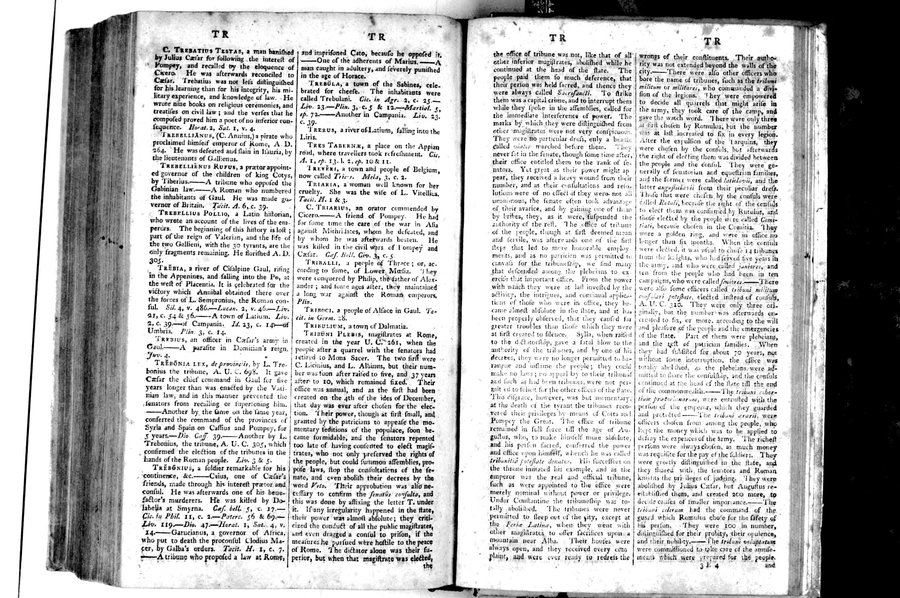 TR
TR
C. TREBATIUS TESTAS, a man banished
by Julius Cæsar for following the interest of
Pompey, and recalled by the eloquence of
Cicero. He was afterwards reconciled to
Cæsar. Trebatius was not less distinguished
for his learning than for his integrity, his mi-
litary experience, and knowledge of law. He
wrote nine books on religious ceremonies, and
treatises on civil law; and the verses that he
composed proved him a poet of no inferior con-
sequence. Horat. 2, Sat. 1, v. 4.
TREBELLIĀNUS, (C. Annius,) a pirate who
proclaimed himself emperor of Rome, A. D.
264. He was defeated and slain in Isauria, by
the lieutenants of Gallienus.
TREBELLIĒNUS RUFUS, a prætor appoint-
ed governor of the children of king Cotys,
by Tiberius.——A tribune who opposed the
Gabinian law.——A Roman who numbered
the inhabitants of Gaul. He was made go-
vernor of Britain. Tacit. A. 6, c. 39.
TREBELLIUS POLLIO, a Latin historian,
who wrote an account of the lives of the em-
perors. The beginning of this history is lost;
part of the reign of Valerian, and the life of
the two Gallieni, with the 30 tyrants, are the
only fragments remaining. He florished A. D.
305.
TRĒBIA, a river of Cisalpine Gaul, rising
in the Appenines, and falling into the Po, at
the west of Placentia. It is celebrated for the
victory which Annibal obtained there over
the forces of L. Sempronius, the Roman con-
sul. Sil. 4, v. 486.—Lucan. 2, v. 46.—Liv.
21, c. 54 & 56.——A town of Latium. Liv.
2, c. 39.—of Campania. Id. 23, c. 14.—of
Umbria. Plin. 3, c. 14.
TREBIUS, an officer in Cæsar's army in
Gaul.——A parasite in Domitian's reign.
Juv. 4.
TRĒBONIA LEX, de provinciis, by L. Tre-
bonius the tribune, A. U. C. 698. It gave
Cæsar the chief command in Gaul for five
years longer than was enacted by the Vati-
nian law, and in this manner prevented the
senators from recalling or superseding him.
——Another by the same on the same year,
conferred the command of the provinces of
Syria and Spain on Cassius and Pompey, for
5 years.—Dio Cass. 39.——Another by L.
Trebonius, the tribune, A. U. C. 305, which
confirmed the election of the tribunes in the
hands of the Roman people. Liv. 3 & 5.
TREBŌNIUS, a soldier remarkable for his
continence, &c.——Caius, one of Cæsar's
friends, made through his interest prætor and
consul. He was afterwards one of his bene-
factor's murderers. He was killed by Do-
labella at Smyrna. Cæs. bell. 5, c. 17.—
Cic. in Phil. 11, c. 2.—Paterc. 56 & 69.—
Liv. 119.—Dio. 47.—Horat. 1, Sat. 4, v.
14.——Garucianus, a governor of Africa,
who put to death the proconsul Clodius Ma-
cer, by Galba's orders. Tacit. H. 1, c. 7.
——A tribune who proposed a law at Rome,
and imprisoned Cato, because he opposed it.
——One of the adherents of Marius.——A
man caught in adultery, and severely punished
in the age of Horace.
TREBŬLA, a town of the Sabines, cele-
brated for cheese. The inhabitants were
called Trebulani. Cic. in Agr. 2, c. 25.—
Liv. 23.—Plin. 3, c. 5 & 12.—Martial. 5,
ep. 72.——Another in Campania. Liv. 23,
c. 39.
TRERUS, a river of Latium, falling into the
Liris.
TRES TABERNÆ, a place on the Appian
road, where travellers took refreshment. Cic.
A. 1, ep. 13. l. 2, ep. 10 & 11.
TREVĬRI, a town and people of Belgium,
now called Triers. Mela, 3, c. 2.
TRIARIA, a woman well known for her
cruelty. She was the wife of L. Vitellius.
Tacit. H. 1 & 3.
C. TRIARIUS, an orator commended by
Cicero.——A friend of Pompey. He had
for some time the care of the war in Asia
against Mithridates, whom he defeated, and
by whom he was afterwards beaten. He
was killed in the civil wars of Pompey and
Cæsar. Cæs. Bell. Civ. 3, c. 5.
TRIBALLI, a people of Thrace; or, ac-
cording to some, of Lower Mœsia. They
were conquered by Philip, the father of Alex-
ander; and some ages after, they maintained
a long war against the Roman emperors.
Plin.
TRIBOCI, a people of Alsace in Gaul. Ta-
cit. in Germ. 28.
TRIBULIUM, a town of Dalmatia.
TRIBŪNI PLEBIS, magistrates at Rome,
created in the year U. C. 261, when the
people after a quarrel with the senators had
retired to Mons Sacer. The two first were
C. Licinius, and L. Albinus, but their num-
ber was soon after raised to five, and 37 years
after to 10, which remained fixed. Their
office was annual, and as the first had been
created on the 4th of the ides of December,
that day was ever after chosen for the elec-
tion. Their power, though at first small, and
granted by the patricians to appease the mo-
mentary seditions of the populace, soon be-
came formidable, and the senators repented
too late of having consented to elect magis-
trates, who not only preserved the rights of
the people, but could summon assemblies, pro-
pose laws, stop the consultations of the se-
nate, and even abolish their decrees by the
word Veto. Their approbation was also ne-
cessary to confirm the senatus consulta, and
this was done by affixing the letter T. under
it. If any irregularity happened in the state,
their power was almost absolute; they criti-
cised the conduct of all the public magistrates,
and even dragged a consul to prison, if the
measures he pursued were hostile to the peace
of Rome. The dictator alone was their su-
perior, but when that magistrate was elected,
the
TR
TR
the office of tribune was not, like that of all
other inferior magistrates, abolished while he
continued at the head of the state. The
people paid them so much deference, that
their person was held sacred, and thence they
were always called Sacrosancti. To strike
them was a capital crime, and to interrupt them
while they spoke in the assemblies, called for
the immediate interference of power. The
marks by which they were distinguished from
other magistrates were not very conspicuous.
They wore no particular dress, only a beadle
called viator marched before them. They
never sat in the senate, though some time after,
their office entitled them to the rank of se-
nators. Yet great as their power might ap-
pear, they received a heavy wound from their
number, and as their consultations and reso-
lutions were of no effect if they were not all
unanimous, the senate often took advantage
of their avarice, and by gaining one of them
by bribes, they, as it were, suspended the
authority of the rest. The office of tribune
of the people, though at first deemed mean
and servile, was afterwards one of the first
steps that led to more honorable employ-
ments, and as no patrician was permitted to
canvass for the tribuneship, we find many
that descended among the plebeians to ex-
ercise that important office. From the power
with which they were at last invested by the
activity, the intrigues, and continual applica-
tions of those who were in office, they be-
came almost absolute in the state, and it has
been properly observed, that they caused far
greater troubles than those which they were
at first created to silence. Sylla, when raised
to the dictatorship, gave a fatal blow to the
authority of the tribunes, and by one of his
decrees, they were no longer permitted to ha-
rangue and inflame the people; they could
make no laws; no appeal lay to their tribunal
and such as had been tribunes, were not per-
mitted to solicit for the other offices of the state.
This disgrace, however, was but momentary,
at the death of the tyrant the tribunes reco-
vered their privileges by means of Cotta and
Pompey the Great. The office of tribune
remained in full force till the age of Au-
gustus, who, to make himself more absolute
and his person sacred, conferred the power
and office upon himself, whence he was called
tribunitiâ potestate donatus. His successors on
the throne imitated his example, and as the
emperor was the real and official tribune,
such as were appointed to the office were
merely nominal without power or privilege.
Under Constantine the tribuneship was to-
tally abolished. The tribunes were never
permitted to sleep out of the city, except at
the Feriæ Latinæ, when they went with
other magistrates to offer sacrifices upon a
mountain near Alba. Their houses were
always open, and they received every com-
plaint, and were ever ready to redress the
wrongs of their constituents. Their autho-
rity was not extended beyond the walls of the
city.——There were also other officers who
bore the name of tribunes, such as the tribuni
militum or militares, who commanded a divi-
sion of the legions. They were empowered
to decide all quarrels that might arise in
the army, they took care of the camp, and
gave the watch word. There were only three
at first chosen by Romulus, but the number
was at last increased to six in every legion.
After the expulsion of the Tarquins, they
were chosen by the consuls, but afterwards
the right of electing them was divided between
the people and the consul. They were ge-
nerally of senatorian and equestrian families,
and the former were called laticlavii, and the
latter angusticlavii from their peculiar dress.
Those that were chosen by the consuls were
called Rutuli, because the right of the consuls
to elect them was confirmed by Rutulus, and
those elected by the people were called Comi-
tiati, because chosen in the Comitia. They
wore a golden ring, and were in office no
longer than six months. When the consuls
were elected, it was usual to chuse 14 tribunes
from the knights, who had served five years in
the army, and who were called juniores, and
ten from the people who had been in ten
campaigns, who were called seniores.——There
were also some officers called tribuni militum
consulari potestate, elected instead of consuls,
A. U. C. 310. They were only three ori-
ginally, but the number was afterwards en-
creased to six, or more, according to the will
and pleasure of the people and the emergencies
of the state. Part of them were plebeians,
and the rest of patrician families. When
they had subsisted for about 70 years, not
without some interruption, the office was
totally abolished, as the plebeians were ad-
mitted to share the consulship, and the consuls
continued at the head of the state till the end
of the commonwealth.——The tribuni cohor-
tium prætorianarum, were entrusted with the
person of the emperor, which they guarded
and protected.——The tribuni ærarii, were
officers chosen from among the people, who
kept the money which was to be applied to
defray the expences of the army. The richest
persons were always chosen, as much money
was requisite for the pay of the soldiers. They
were greatly distinguished in the state, and
they shared with the senators and Roman
knights the privileges of judging. They were
abolished by Julius Cæsar, but Augustus re-
established them, and created 200 more, to
decide causes of smaller importance.——The
tribuni celerum had the command of the
guard which Romulus chose for the safety of
his person. They were 100 in number,
distinguished for their probity, their opulence,
and their nobility.——The tribuni voluptatum
were commissioned to take care of the amuse-
ments which were prepared for the people,
3 E 4
and